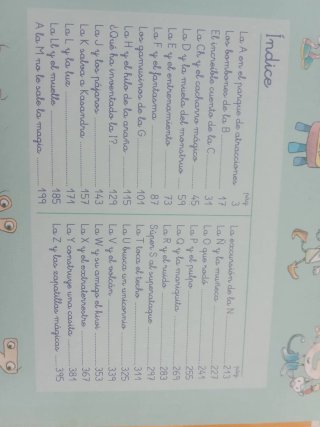 Índice
pág.
La A en el parque de atracciones 3
Los bombones de la B 17
El increíble cuento de la C 31
La Ch y el cacharro mágico 45
La D y la muela del monstruo 59
La E y el entrenamiento 73
La F y el fantasma 87
Los gamusinos de la G 101
La H y el hilo de la araña 115
¿Qué ha inventado la I? 129
La J y los pájaros 143
La K salva a Kasandra 157
La L y la luz 171
La Ll y el muelle 185
A la M no le sale la magia 199
pág.
La excursión de la N 213
La Ñ y la muñeca 227
La O que rodó 241
La P y el pulpo 255
La Q y la mariquita 269
La R y el ruido 283
Super S es superataque 297
La T toca el techo 311
La U busca un unicornio 325
La V y el volcán 339
La W y su amigo el kiwi 353
La X y el extraterrestre 367
La Y construye una casita 381
La Z y las zapatillas mágicas 395